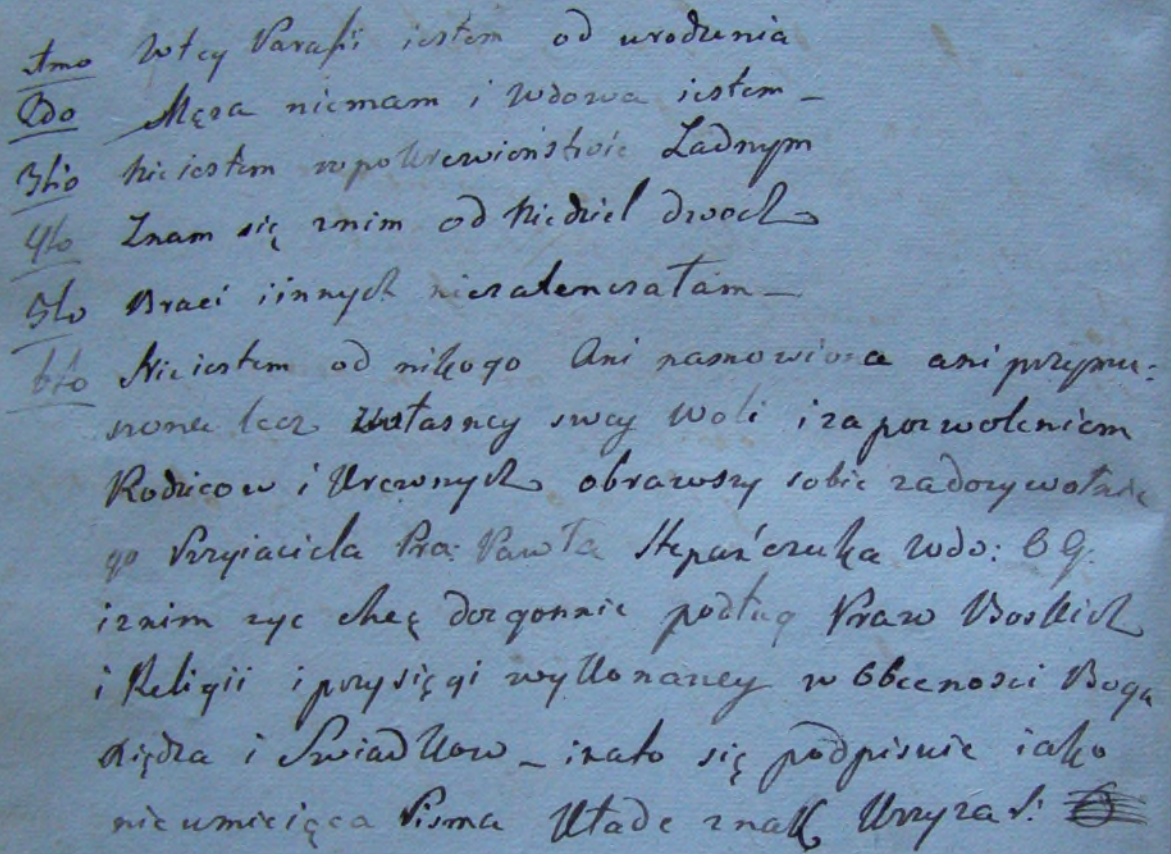 1mo Wtey Parafii iestem od urodzenia
2do Męza niemam i Wdowa iestem _
3tio Nieiestem wpokrewienstwie Zadnym
4to Znam się znim od Niedziel dwoch
5to Braci iinnych niezalenczałam _
6to Nieiestem od nikogo Ani namowiona ani przymu:
szona lecz zwłasney swey Woli i za pozwoleniem
Rodzicow i Krewnych obrawszy sobie zadozywotnie
go Przyiaciela Pra: Pawła Stepańczuka Wdo: B G.
iznim zyc chcę dozgonnie podług Praw Boskich
i Religii i przysięgi wykonaney w Obecnosci Boga
Xiędza i Swiadkow _ inato się podpisuie iako
nieumieiąca Pisma Kładę znak Krzyza S: